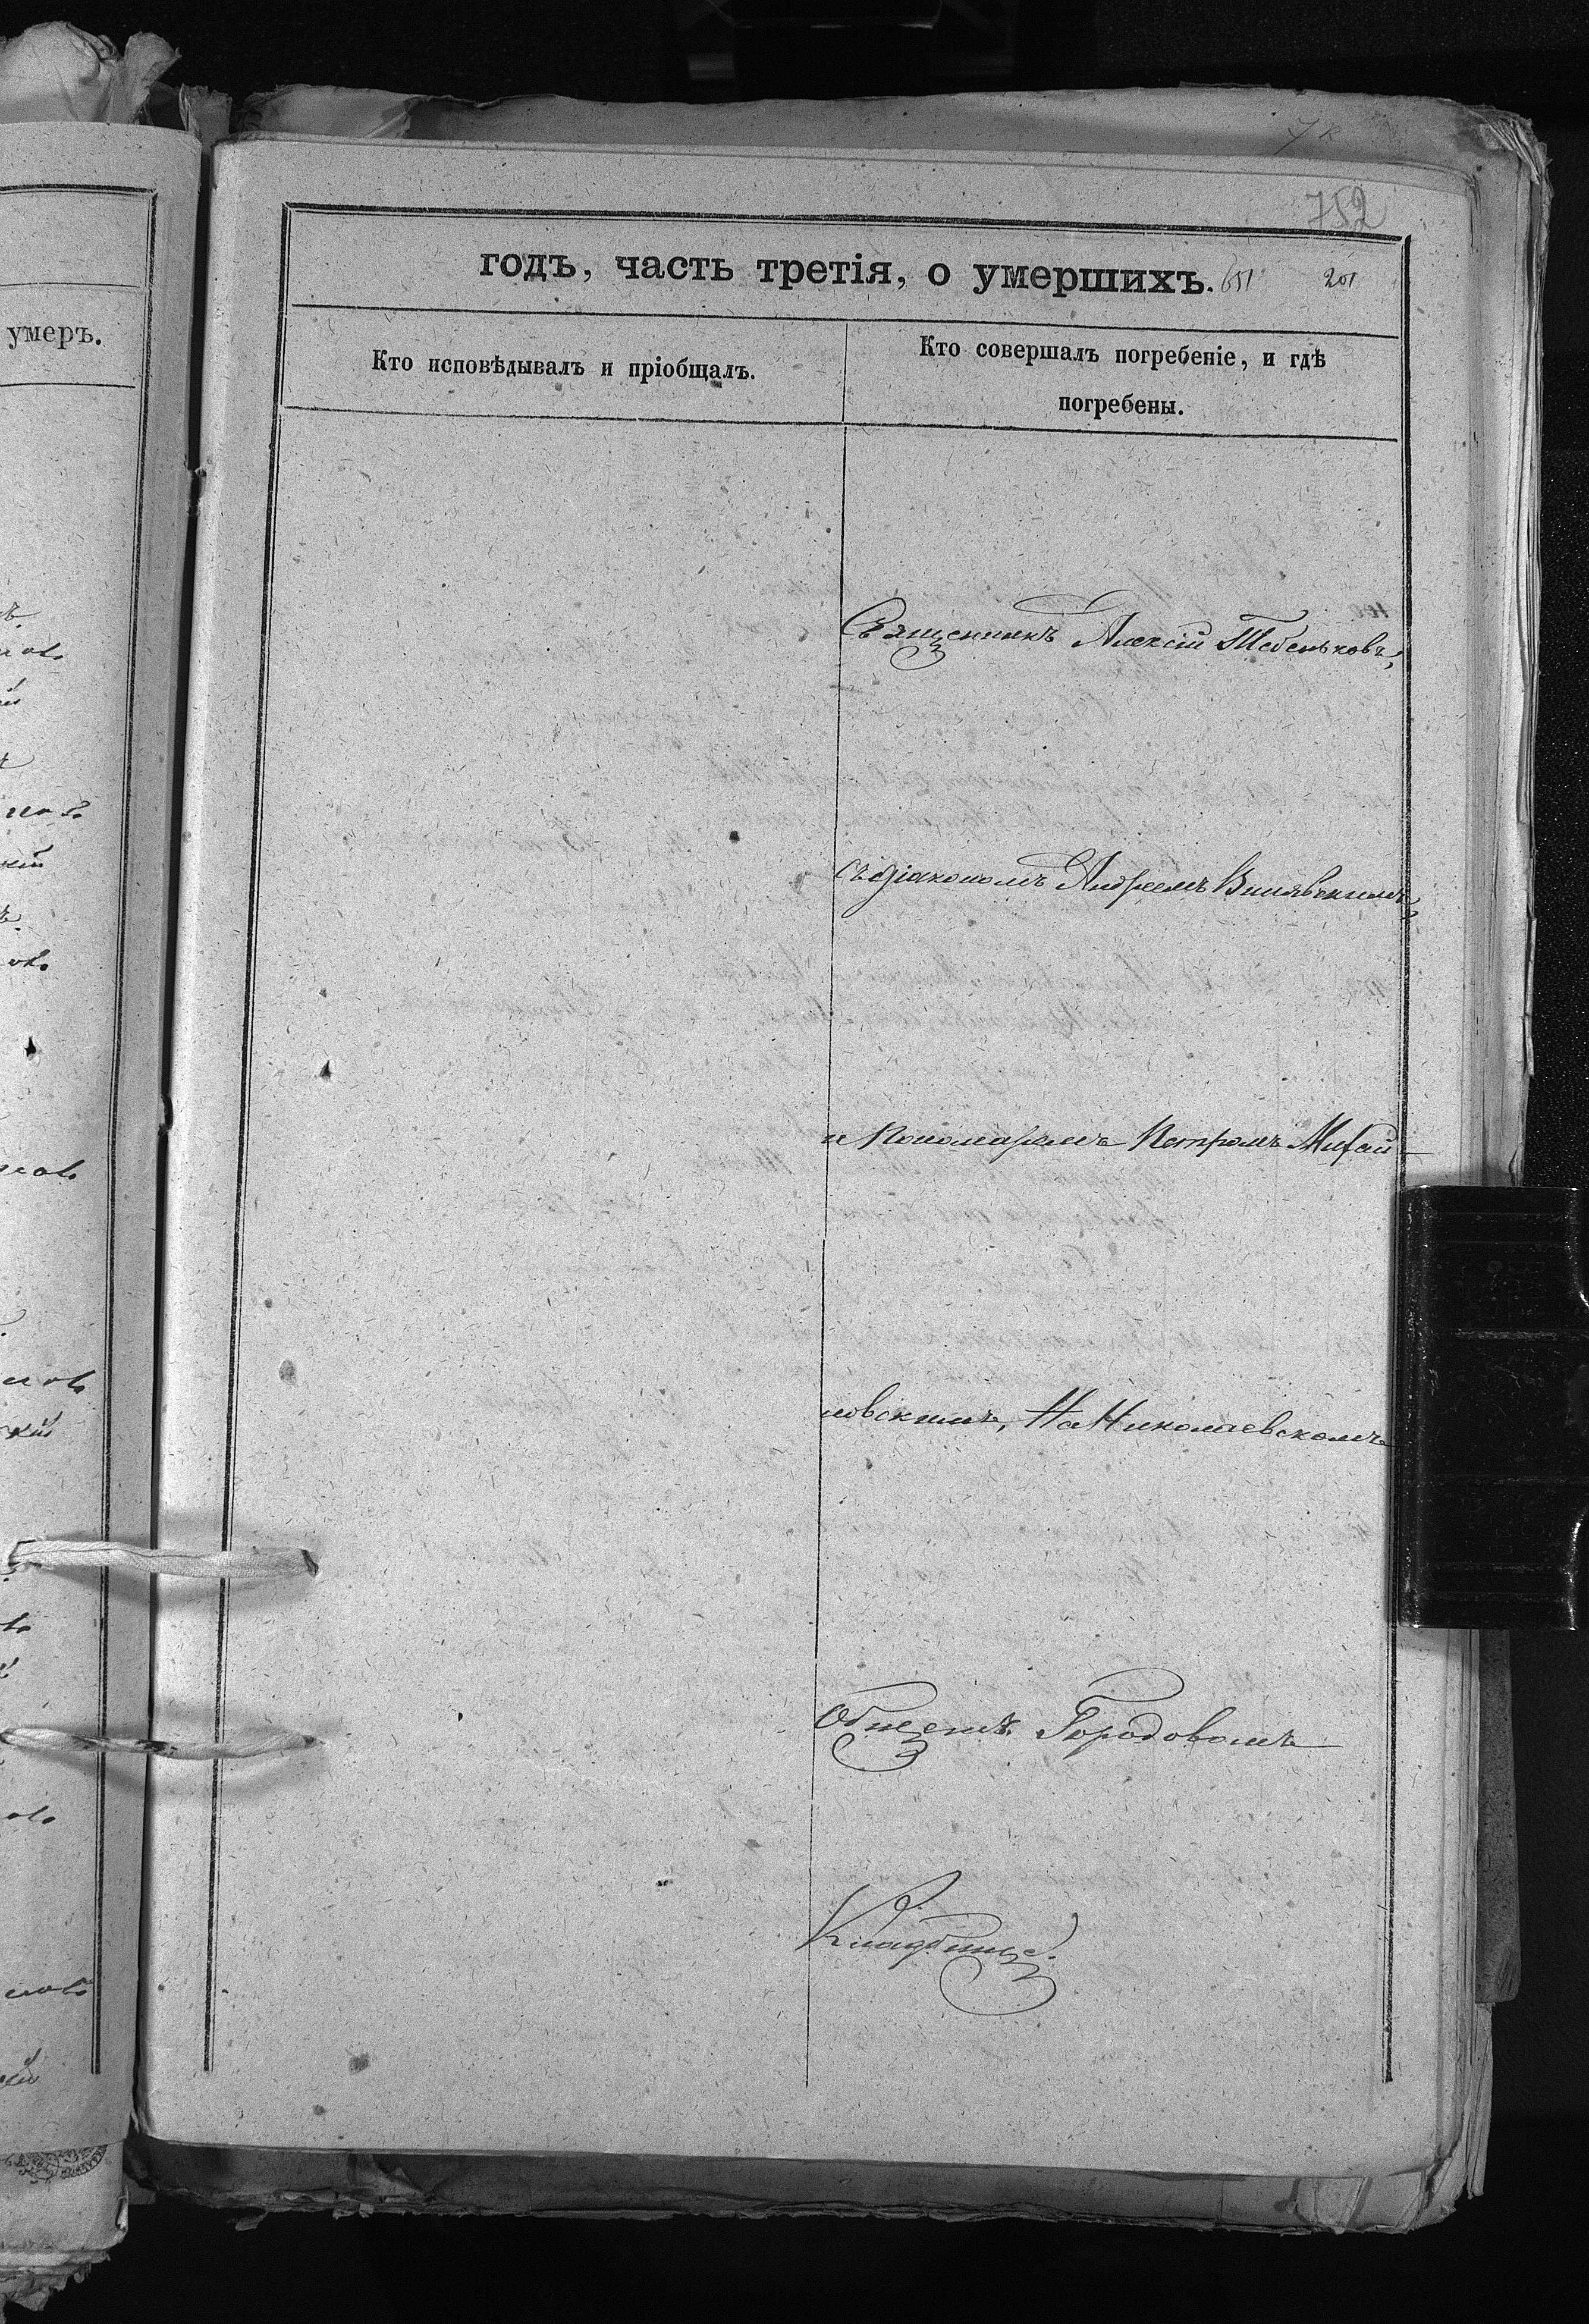 752
годъ, часть третія, о умершихъ. 651 201
умеръ.
Кто исповѣдывалъ и пріобщалъ.
Кто совершалъ погребеніе, и гдѣ
погребены.
Священникъ Алексій Тебеньковъ,
съ діакономъ Андреемъ
и Пономаремъ Петромъ Михай-
ловскимъ, На Николаевскомъ
Общемъ Городовомъ
Кладбищѣ.